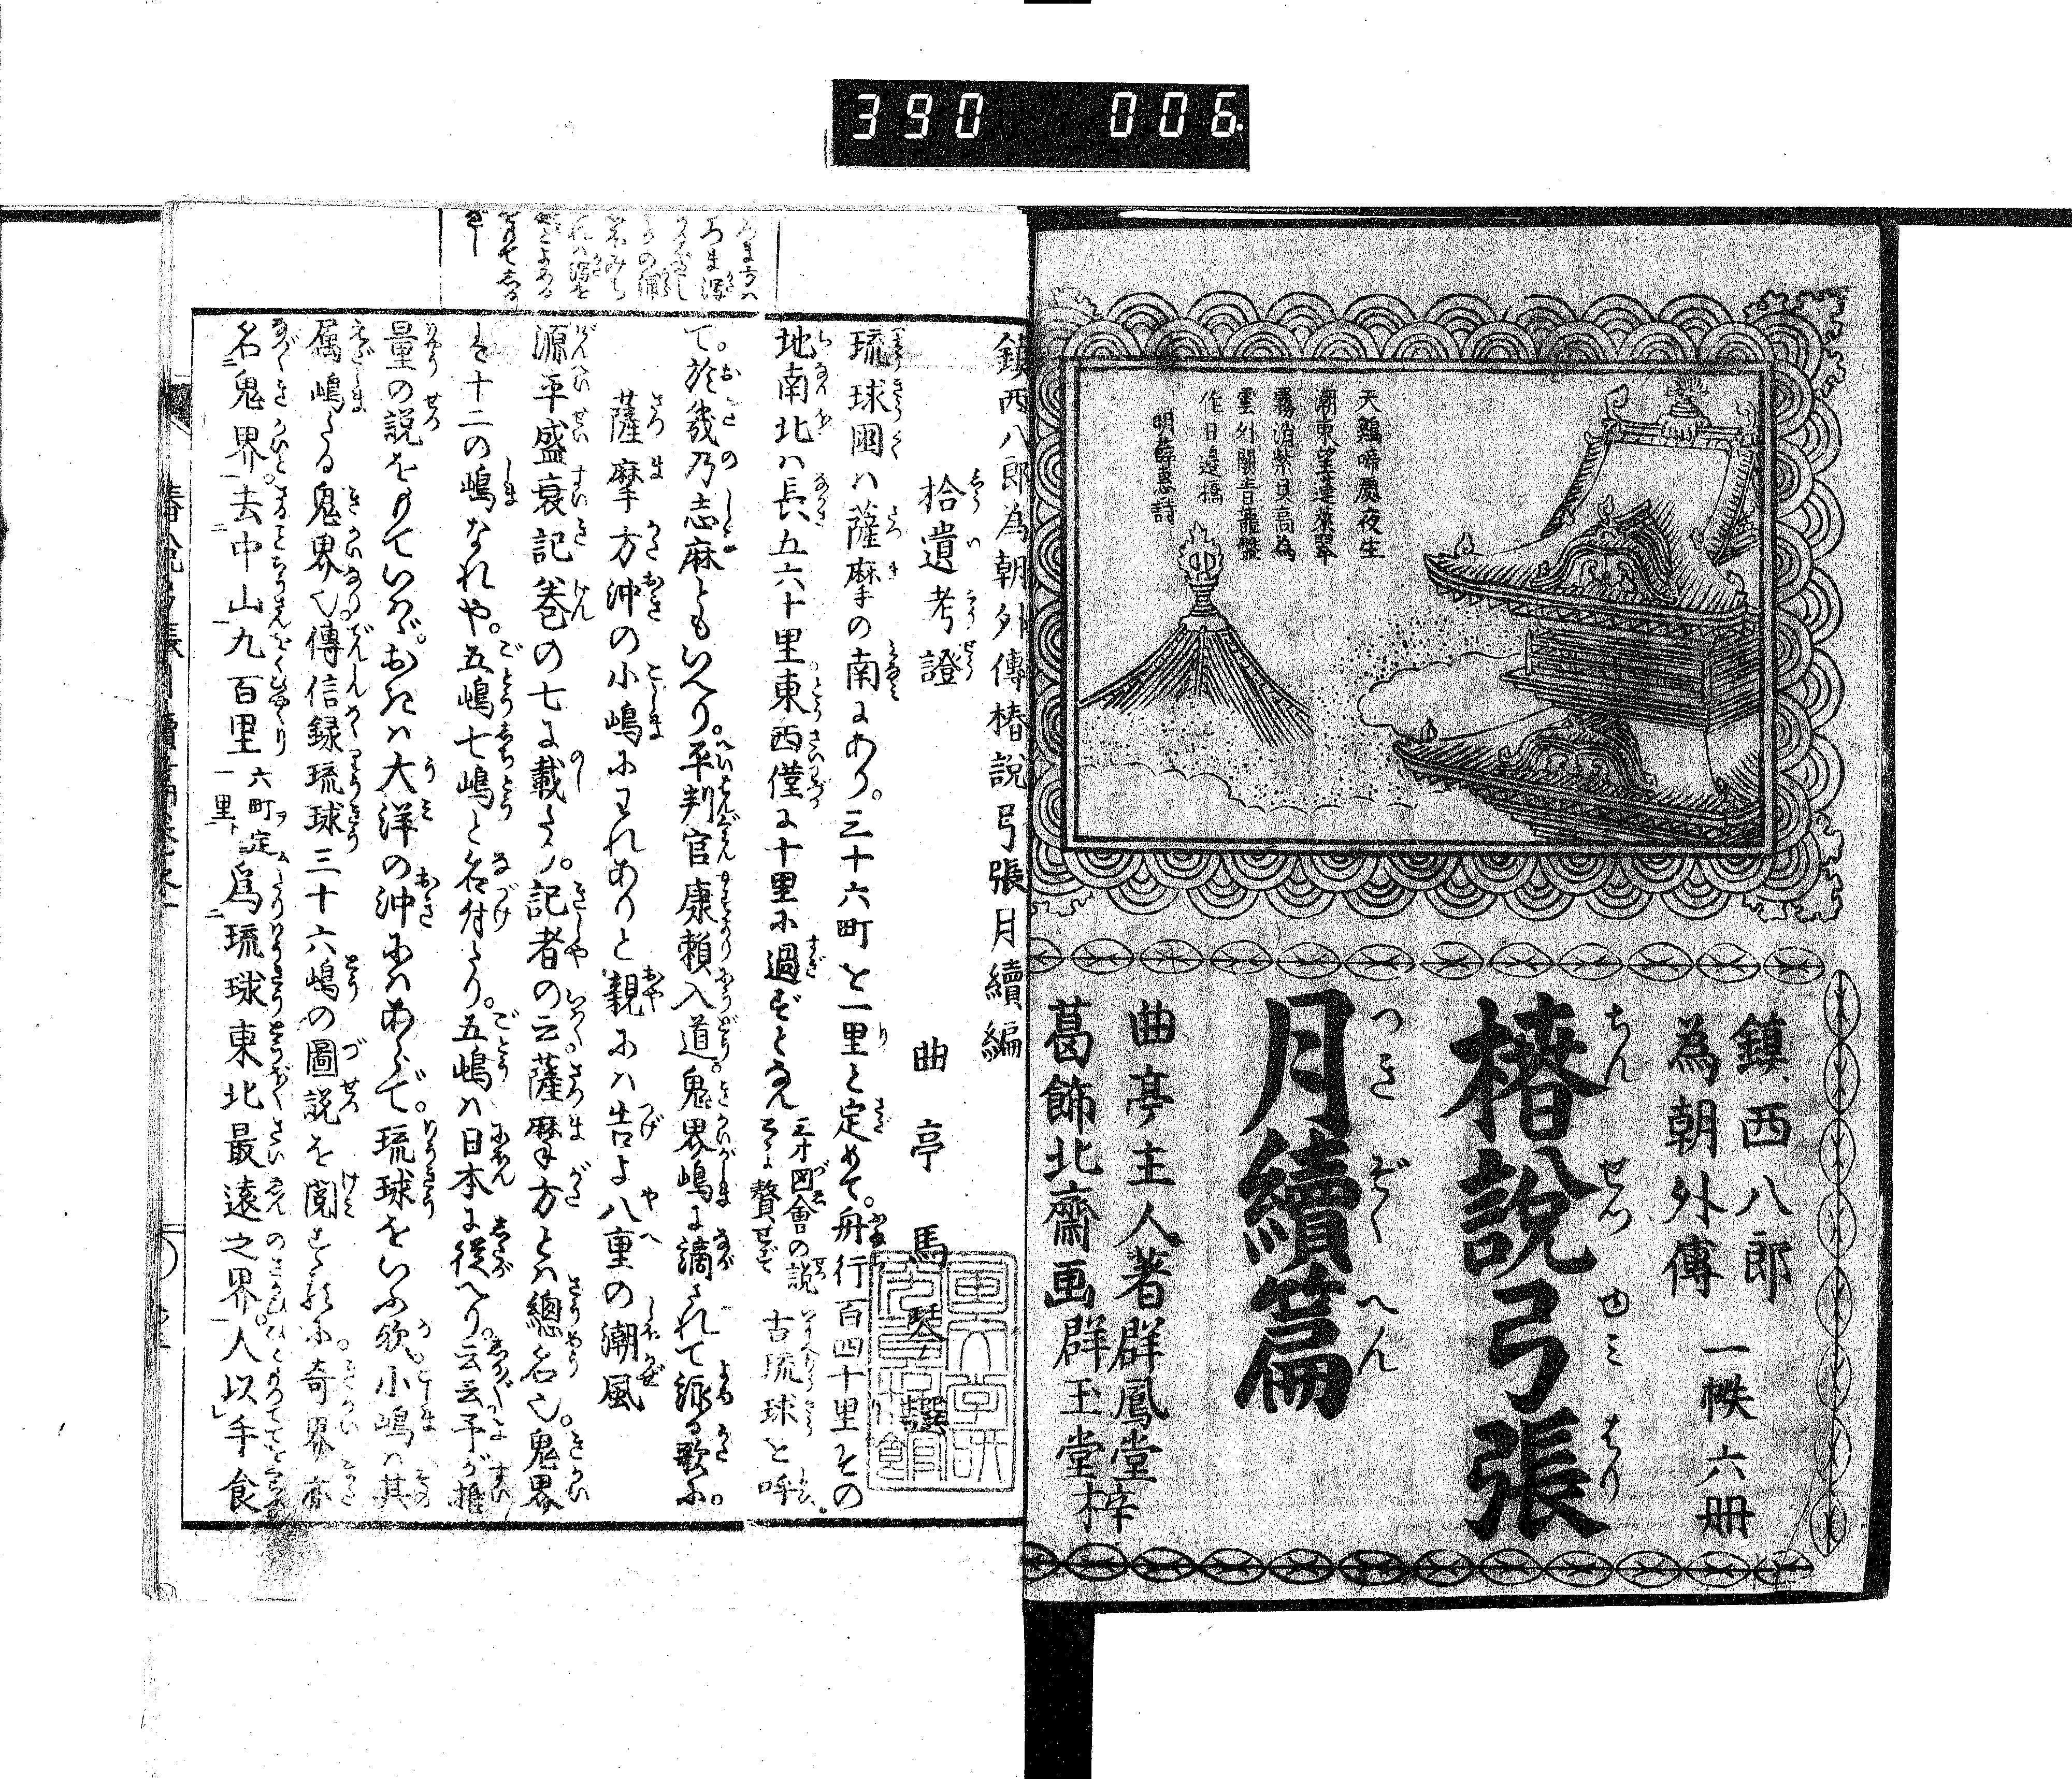 390 006
天鷄啼罷夜生
潮東望蓬萊翠
霧消紫貝高為
雲外闕青龍盤
作日邊橋
明薛惠詩
鎮西八郎
為朝外傳
一帙六册
椿說弓張
ちんせつゆみはり
月續篇
つきぞくへん
曲亭主人著
葛飾北齋画
群鳳堂
群玉堂
梓
鎮西八郎為朝外傳椿說弓張月續編
拾遺考證
曲亭馬琴撰
琉球國ハ薩摩の南にあり。三十六町を一里と定めて。舟行百四十里その
地南北ハ長五六十里東西僅に十里に過ずとなん
三才図會の説
こゝに贅せず
古琉球と呼
て。於幾乃志麻ともいへり。平判官康頼入道。鬼界嶋に謫されて詠る歌に。
薩摩方沖の小嶋にわれありと親にハ告よ八重の潮風
源平盛衰記巻の七に載たり。記者の云薩摩方とハ總名也。鬼界
は十二の嶋なれや。五嶋七嶋と名付たり。五嶋ハ日本に従へり。云云予が推
量の説をもていハゞ。おきハ大洋の沖にハあらで。琉球をいふ欤。小嶋ハ其
属嶋たる鬼界也。傳信録琉球三十六嶋の圖説を閲するに。奇界亦
名鬼界。去中山九百里
六町定
一里
為琉球東北最遠之界。人以手食